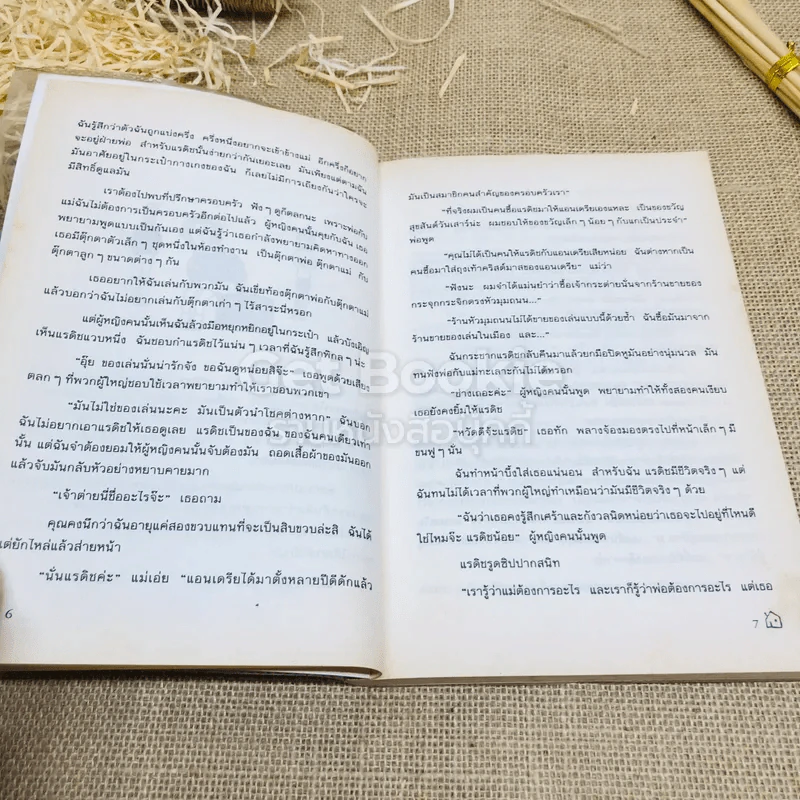 ฉันรู้สึกว่าตัวฉันถูกแบ่งครึ่ง ครึ่งหนึ่งอยากจะเข้าข้างแม่ อีกครึ่งก็อยาก
จะอยู่ฝ่ายพ่อ สำหรับแรดิชนั้นง่ายกว่ากันเยอะเลย มันเพียงแต่ตามฉัน
มันอาศัยอยู่ในกระเป๋ากางเกงของฉัน ก็เลยไม่มีการเถียงกันว่าใครจะ
มีสิทธิ์ดูแลมัน
เราต้องไปพบที่ปรึกษาครอบครัว ฟังๆ ดูก็ตลกนะ เพราะพ่อกับ
แม่ฉันไม่ต้องการเป็นครอบครัวอีกต่อไปแล้ว ผู้หญิงคนนั้นคุยกับฉัน เธอ
พยายามพูดแบบเป็นกันเอง แต่ฉันรู้ว่าเธอกำลังพยายามคิดหาทางออก
เธอมีตุ๊กตาตัวเล็กๆ ชุดหนึ่งในห้องทำงาน เป็นตุ๊กตาพ่อ ตุ๊กตาแม่ กับ
ตุ๊กตาลูกๆ ขนาดต่างๆ กัน
เธออยากให้ฉันเล่นกับพวกมัน ฉันเขี่ยท้องตุ๊กตาพ่อกับตุ๊กตาแม่
แล้วบอกว่าฉันไม่อยากเล่นกับตุ๊กตาเก่าๆ ไร้สาระนี่หรอก
แต่ผู้หญิงคนนั้นเห็นฉันล้วงมือหยุกหยิกอยู่ในกระเป๋า แล้วบังเอิญ
เห็นแรดิชแวบหนึ่ง ฉันชอบกำแรดิชไว้แน่นๆ เวลาที่ฉันรู้สึกพิกลๆ น่ะ
"อุ๊ย ของเล่นนั่นน่ารักจัง ขอฉันดูหน่อยสิจ๊ะ" เธอพูดด้วยเสียง
ตลกๆ ที่พวกผู้ใหญ่ชอบใช้เวลาพยายามทำให้เราชอบพวกเขา
"มันไม่ใช่ของเล่นนะคะ มันเป็นตัวนำโชคต่างหาก" ฉันบอก
ฉันไม่อยากเอาแรดิชให้เธอดูเลย แรดิชเป็นของฉัน ของฉันคนเดียวเท่า
นั้น แต่ฉันจำต้องยอมให้ผู้หญิงคนนั้นจับต้องมัน ถอดเสื้อผ้าของมันออก
แล้วจับมันกลับหัวอย่างหยาบคายมาก
"เจ้าต่ายนี่ชื่ออะไรจ๊ะ" เธอถาม
คุณคงนึกว่าฉันอายุแค่สองขวบแทนที่จะเป็นสิบขวบล่ะสิ ฉันได้
แต่ยักไหล่แล้วส่ายหน้า
"นั่นแรดิชค่ะ" แม่เอ่ย "แอนเดรียได้มาตั้งหลายปีดีดักแล้ว
6
มันเป็นสมาชิกคนสำคัญของครอบครัวเรา"
"ที่จริงผมเป็นคนซื้อแรดิชมาให้แอนเดรียเองแหละ เป็นของขวัญ
สุขสันต์วันเสาร์น่ะ ผมชอบให้ของขวัญเล็กๆ น้อยๆ กับแกเป็นประจำ"
พ่อพูด
"คุณไม่ได้เป็นคนให้แรดิชกับแอนเดรียเสียหน่อย ฉันต่างหากเป็น
คนซื้อมาใส่ถุงเท้าคริสต์มาสของแอนเดรีย" แม่ว่า
"ฟังนะ ผมจำได้แม่นยำว่าซื้อเจ้ากระต่ายนั่นจากร้านขายของ
กระจุกกระจิกตรงหัวมุมถนน..."
"ร้านหัวมุมถนนไม่ได้ขายของเล่นแบบนี้ด้วยซ้ำ ฉันซื้อมันมาจาก
ร้านขายของเล่นในเมือง และ..."
ฉันกระชากแรดิชกลับคืนมาแล้วยกมือปิดหูมันอย่างนุ่มนวล มัน
ทนฟังพ่อกับแม่ทะเลาะกันไม่ได้หรอก
"ช่างเถอะค่ะ" ผู้หญิงคนนั้นพูด พยายามทำให้ทั้งสองคนเงียบ
เธอยังคงยิ้มให้แรดิช
"หวัดดีจ้ะแรดิช" เธอทัก พลางจ้องมองตรงไปที่หน้าเล็กๆ มี
ขนฟูๆ นั่น
ฉันทำหน้าบึ้งใส่เธอแน่นอน สำหรับฉัน แรดิชมีชีวิตจริงๆ แต่
ฉันทนไม่ได้เวลาที่พวกผู้ใหญ่ทำเหมือนว่ามันมีชีวิตจริงๆ ด้วย
"ฉันว่าเธอคงรู้สึกเศร้าและกังวลนิดหน่อยว่าเธอจะไปอยู่ที่ไหนดี
ใช่ไหมจ๊ะ แรดิชน้อย" ผู้หญิงคนนั้นพูด
แรดิชรูดซิปปากสนิท
"เรารู้ว่าแม่ต้องการอะไร และเราก็รู้ว่าพ่อต้องการอะไร แต่เธอ
7
Get Bookie
ร้านหนังสือคุกกี้